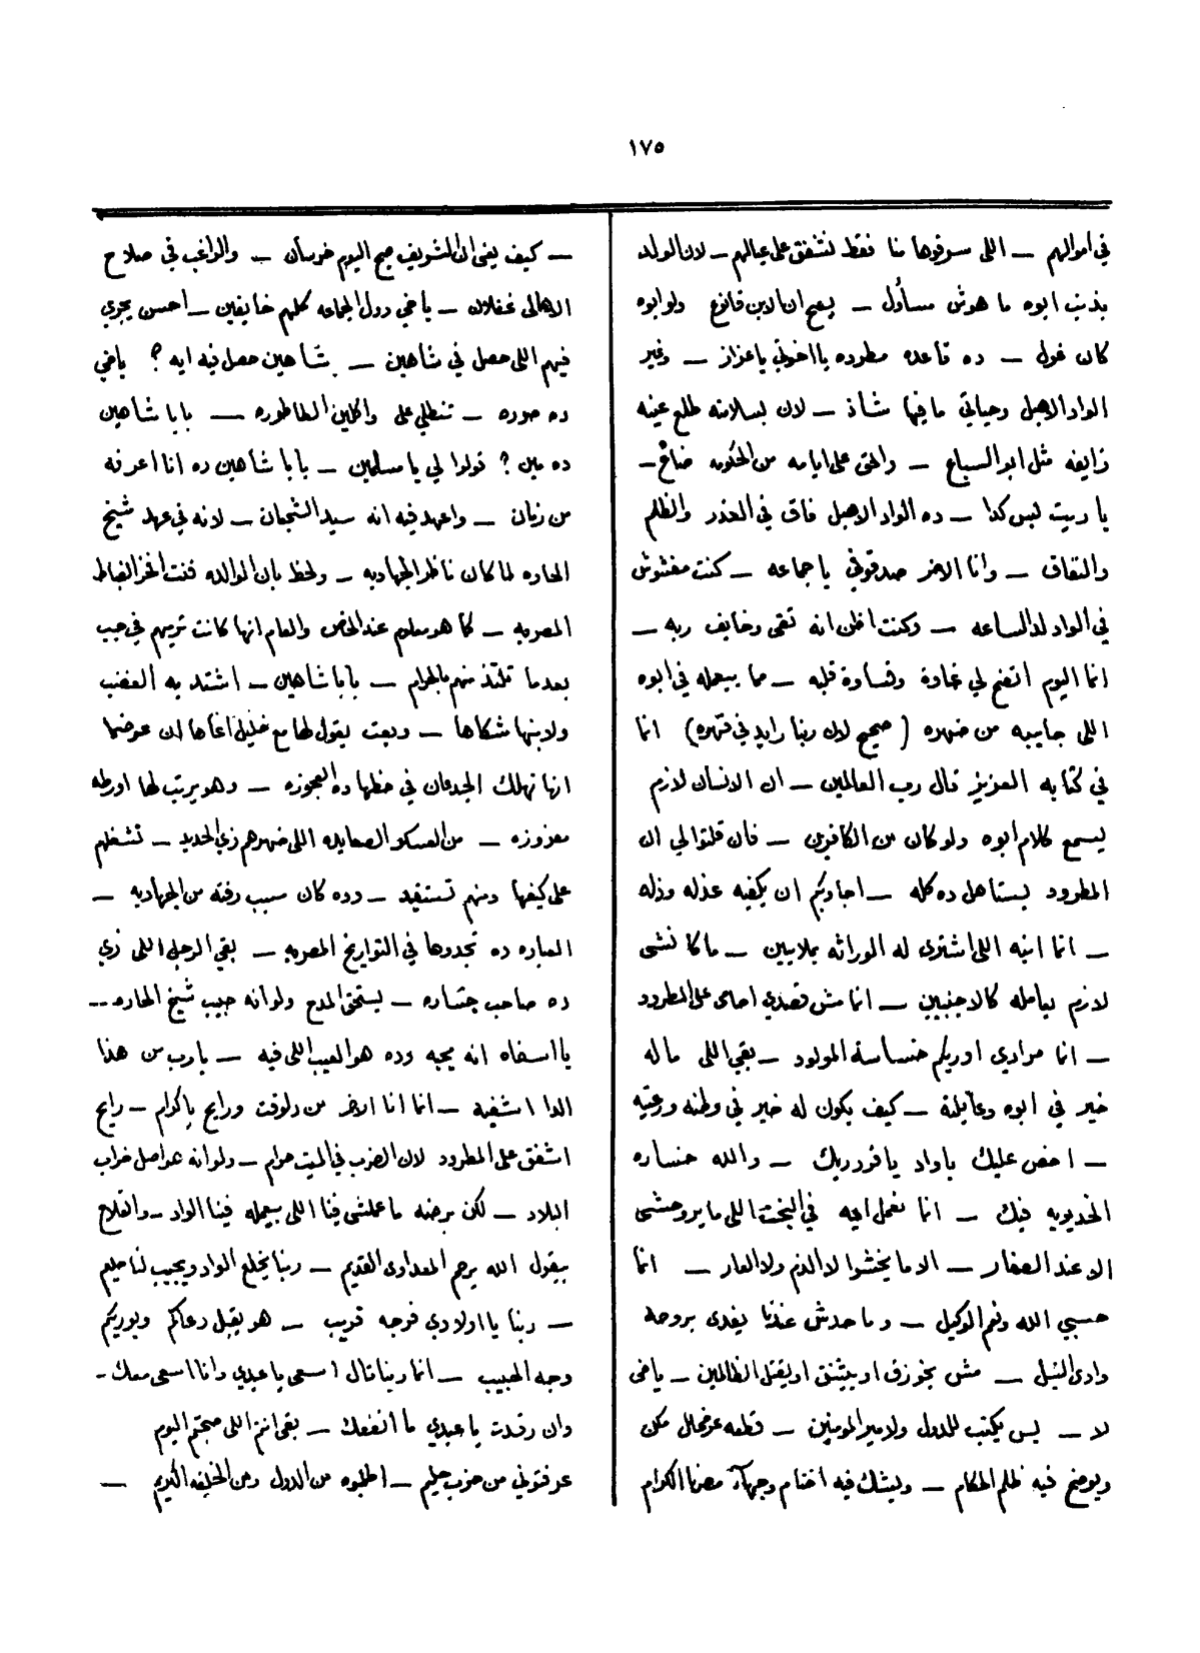 ١٧٥
في اموالهم — اللى سرقوها منا فقط نشفق على عيالهم — لان الولد
بذنب ابوه ما هوش مسأول — يصح ان الابن قانوع ولو ابوه
كان غول — ده قاعده مطروده يا اخوتي يا عزاز — وغير
الواد الاهبل وحياتي ما فيها شاذ — لان بسلامته طلع عينه
زايغه مثل ابو السباع — والحق على ايامه من الحكومه ضاع —
يا ريت بس كدا — ده الواد الاهبل فاق في الغدر والظلم
والنفاق — وانا الاخر صدقوني يا جماعه — كنت مغشوش
في الواد لدالساعه — وكنت اظن انه تقى وخايف ربه —
انما اليوم اتضح لي غباوة وقساوة قلبه — مما بيعمله في ابوه
اللى جايبه من ضهره (صحيح لان ربنا رايد في قهره) انما
في كتابه العزيز قال رب العالمين — ان الانسان لازم
يسمع كلام ابوه ولو كان من الكافرين — فان قلتوا لي ان
المطرود يستاهل ده كله — اجاوبكم ان يكفيه عذله وذله
— انما ابنه اللى اشترى له الوراثه بملايين — ما كانشى
لازم يعامله كالاجنبيين — انما مش قصدي احامى على المطرود
— انما مرادي اوريكم خساسة المولود — بقي اللى ما له
خير في ابوه وعايلته — كيف يكون له خير في وطنه ورعيته
— اخص عليك يا واد يا قردريك — والله خساره
الخديويه فيك — انما نعمل ايه في البخت اللى ما يروحشى
الا عند الصغار — الا ما يخشوا لا الذم ولا العار — انما
حسبي الله ونعم الوكيل — وما حدش عندنا يفدى بروحه
وادى النيل — مش يخوزق او يشنق او يقتل الظالمين — ياخى
لا — بس يكتب للدول ولامير المومنين — قطعه عرضحال مكن
ويوضح فيه ظلم الحكام — ويشك فيه اختام وجهآء مصرنا الكرام
— كيف يفى ان الشريف صبح اليوم خرسان — والراغب في صلاح
الاهالى غفلان — ياخي دول الجماعه كلهم خايفين — احسن يجري
فيهم اللى حصل في شاهين — شاهين حصل فيه ايه؟ ياخي
ده صوره — تنطلي على واكلين الطاطوره — بابا شاهين
ده مين؟ قولوا لي يا مسلمين — بابا شاهين ده انا اعرفه
من زمان — واعهد فيه انه سيد الشجعان — لانه في عهد شيخ
الحاره لما كان ناظر الجهاديه — ولحظ بان الوالده فنت الضباط
المصريه — كما هو معلوم عند الخاص والعام انها كانت ترميهم في جب
بعدما تلتذ منهم بالحرام — بابا شاهين — اشتد به الغضب
ولابنها شكاها — وبعت يقول لها مع خليل اغاها ان عوضما
انها تهلك الجدعان في حظها ده العجوزه — وهو يرتب لها اورطه
معزوزه — من العسكر الصعايده اللى ضهرهم زي الحديد — تشغلهم
على كيفها ومنهم تستفيد — وده كان سبب رفته من الجهاديه —
العباره ده تجدوها في التواريخ المصريه — بقي الرجل اللى زي
ده صاحب جساره — يستحق المدح ولو انه حبيب شيخ الحاره --
يا اسفاه انه يحبه وده هو العيب اللى فيه — يارب من هذا
الدا اشفيه — انما انا الاخر من دلوقت ورايح يا كرام — رايح
اشفق على المطرود لان الضرب في الميت حرام — ولو انه هو اصل خراب
البلاد — لكن برضه ما عملشى فينا اللى بيعمله فينا الواد — والفلاح
بيقول الله يرحم المعداوى القديم — ربنا يخلع الواد ويجيب لنا حليم
— ربنا يا اولادي فرجه قريب — هو يقبل دعاكم ويوريكم
وجه الحبيب — انما ربنا قال اسعى يا عبدي وانا اسعى معك -
وان رقدت يا عبدي ما انفعك — بقى انتم اللى صبحتم اليوم
عرفتوني من حزب حليم — اطلبوه من الدول ومن الخليفه الكريم —